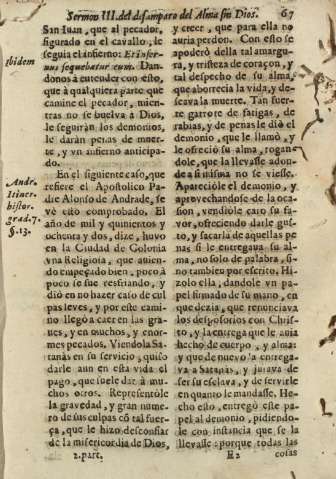 Sermon III. del desamparo del Alma sin Dios. 67
San Iuan, que al pecador,
figurado en el cavallo, le
seguia el infierno: Et infer-
nus sequebatur eum. Dan-
donos à entender con esto,
que à qualquiera parte que
camine el pecador, mien-
tras no se buelva à Dios,
le seguiràn los demonios,
le daràn penas de muer-
te, y vn infierno anticipa-
do.
En el siguiente caso, que
refiere el Apostolico Pa-
dre Alonso de Andrade, se
vè esto comprobado. El
año de mil y quinientos y
ochenta y dos, dize, huvo
en la Ciudad de Colonia
vna Religiosa, que auien-
do empeçado bien, poco à
poco se fue resfriando, y
diò en no hazer caso de cul
pas leves, y por este cami-
no llegò a caer en las gra-
ves, y en muchos, y enor-
mes pecados. Viendola Sa-
tanàs en su servicio, quiso
darle aun en esta vida el
pago, que suele dar à mu-
chos otros. Representòle
la gravedad, y gran nume-
ro de sus culpas cõ tal fuer-
ça, que le hizo desconfiar
de la misericordia de Dios,
2. part.
Ibidem
Andr.
Itiner.
histor.
grad. 7.
§. 13.
y creer, que para ella no
auria perdon. Con esto se
apoderò della tal amargu-
ra, y tristeza de coraçon, y
tal despecho de su alma,
que aborrecia la vida, y de-
seava la muerte. Tan fuer-
te garrote de fatigas, de
rabias, y de penas le diò el
demonio, que le llamò, y
le ofreciò su alma, rogan-
dole, que la llevasse adon-
de a si misma no se viesse.
Apareciòle el demonio, y
aprovechandose de la oca-
sion, vendiòle caro su fa-
vor, ofreciendo darle gus-
to, y sacarla de aquellas pe
nas si le entregava su al-
ma, no solo de palabra, si-
no tambien por escrito. Hi-
zolo ella, dandole vn pa-
pel firmado de su mano, en
que dezia, que renunciava
los desposorios con Chris-
to, y la entrega que le auia
hecho de cuerpo, y alma:
y que de nuevo la entrega-
va à Satanàs, y jurava de
ser su esclava, y de servirle
en quanto le mandasse. He-
cho esto, entregò este pa-
pel al demonio, pidiendo-
le con instancia que se la
llevasse: porque todas las
E 2 cosas